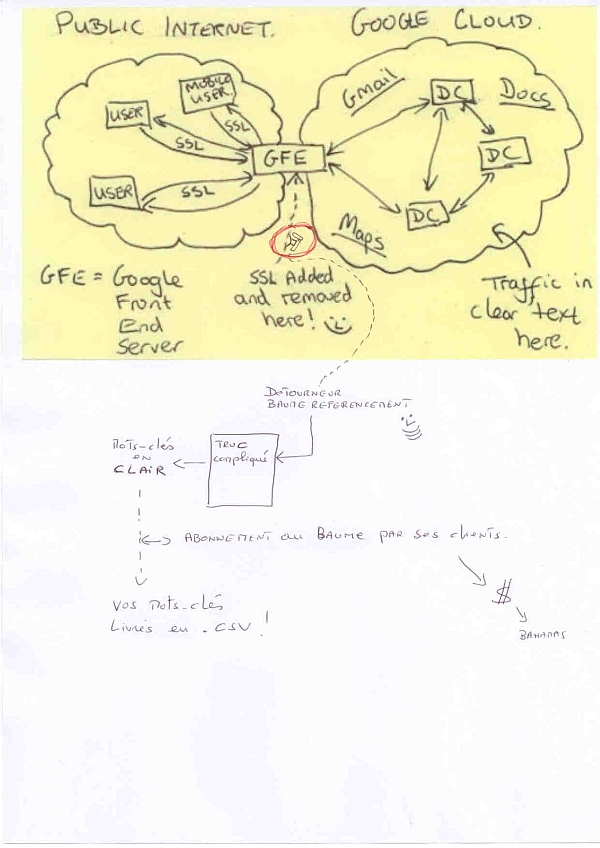 PUBLIC INTERNET.
GOOGLE CLOUD.
MOBILE
USER.
Gmail
DC
Docs
USER
SSL
SSL
GFE
DC
USER
SSL
DC
Maps
GFE = Google
Front
End
Server
SSL Added
and removed
here!
Traffic in
clear text
here.
DETOURNEUR
BAUME REFERENCEMENT
Mots-clés
en
CLAIR
TRUC
compliqué
ABONNEMENT au BAUME PAR ses clients.
$
BAHAMAS
Vos Mots-clés
Livrés en .CSV !